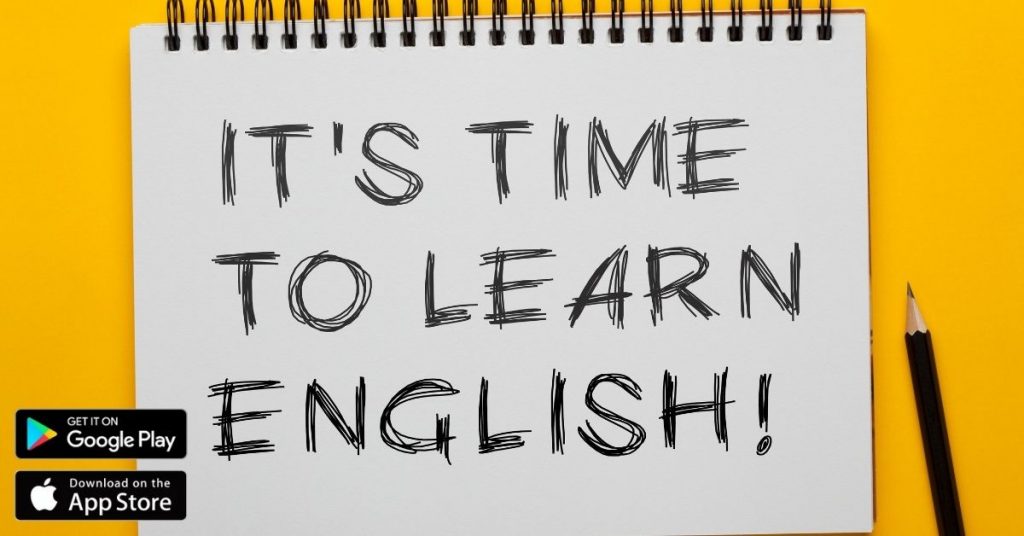 IT'S TIME
TO LEARN
ENGLISH!
GET IT ON
Google Play
Download on the
App Store